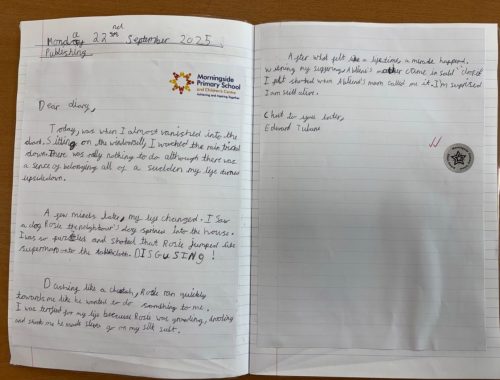 Monday 22nd September 2025
Publishing
Morningside
Primary School
and Children's Centre
Achieving and Inspiring Together
Dear diary,
Today, was when I almost vanished into the
dark. Sitting on the windowsill, I watched the rain trickle
down. There was really nothing to do although there was
a sence of belonging all of a sudden my life turned
upsidedown.
A few minets later, my life changed. I saw
a dog Rosie the neighbour's dog sprinted into the house.
I was so and shoked that Rosie jumped like
superman onto the tablecloth. DISGUSING!
Dashing like a cheetah, Rosie ran quickly
towards me like he wanted to do something to me.
I was terrified for my life because Rosie was growling, drooling
and he made go on my silk suit.
After what felt like a lifetime, a miracle happend.
my suffering, Abilene's mother came in said
I felt shocked when Abilene's mom called me it. I'm suprised
I am still alive.
Chat to you later,
Edward Tulane